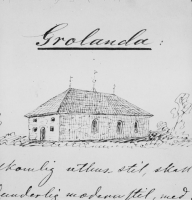 Grolanda:
uthus stil, skall
underlig modern stil, med